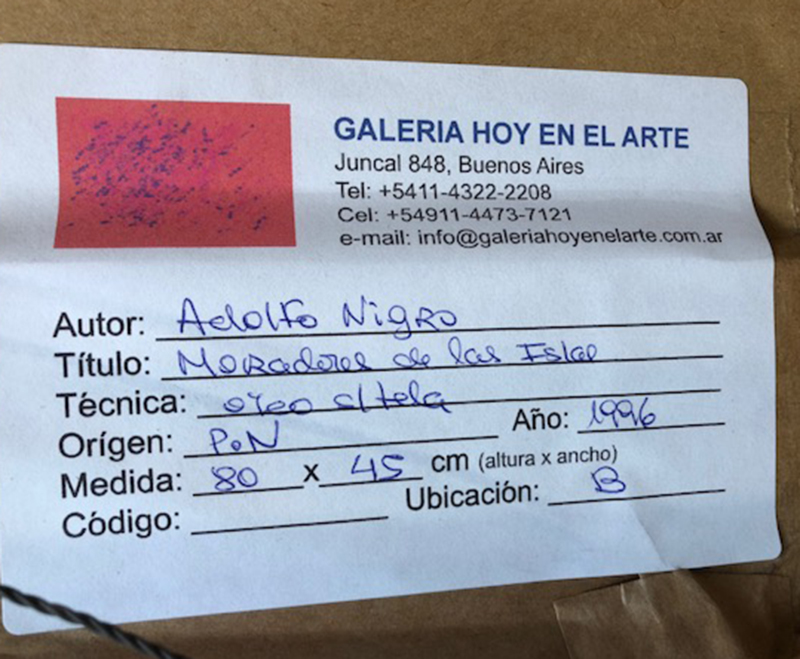 GALERIA HOY EN EL ARTE
Juncal 848, Buenos Aires
Tel: +5411-4322-2208
Cel: +54911-4473-7121
e-mail: info@galeriahoyenelarte.com.ar
Autor: Adolfo Nigro
Título: Moradores de las Islas
Técnica: oleo s/tela
Orígen: P.N Año: 1996
Medida: 80 x 45 cm (altura x ancho)
Código: Ubicación: B